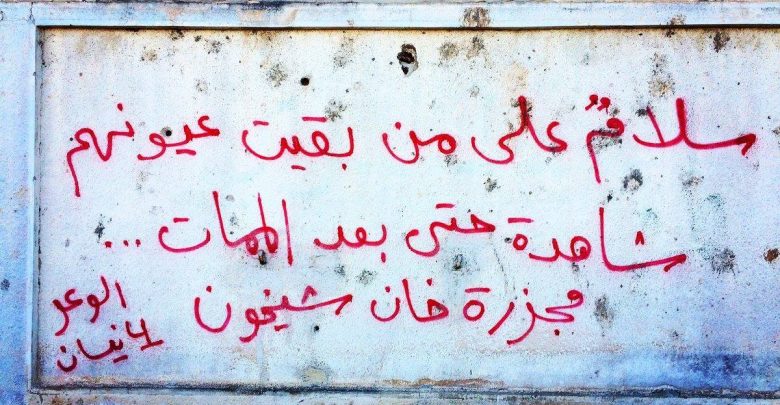 سلامٌ على من بقيت عيونهم
شاهدة حتى بعد الممات ...
مجزرة خان شيخون
الوعر
4 نيسان